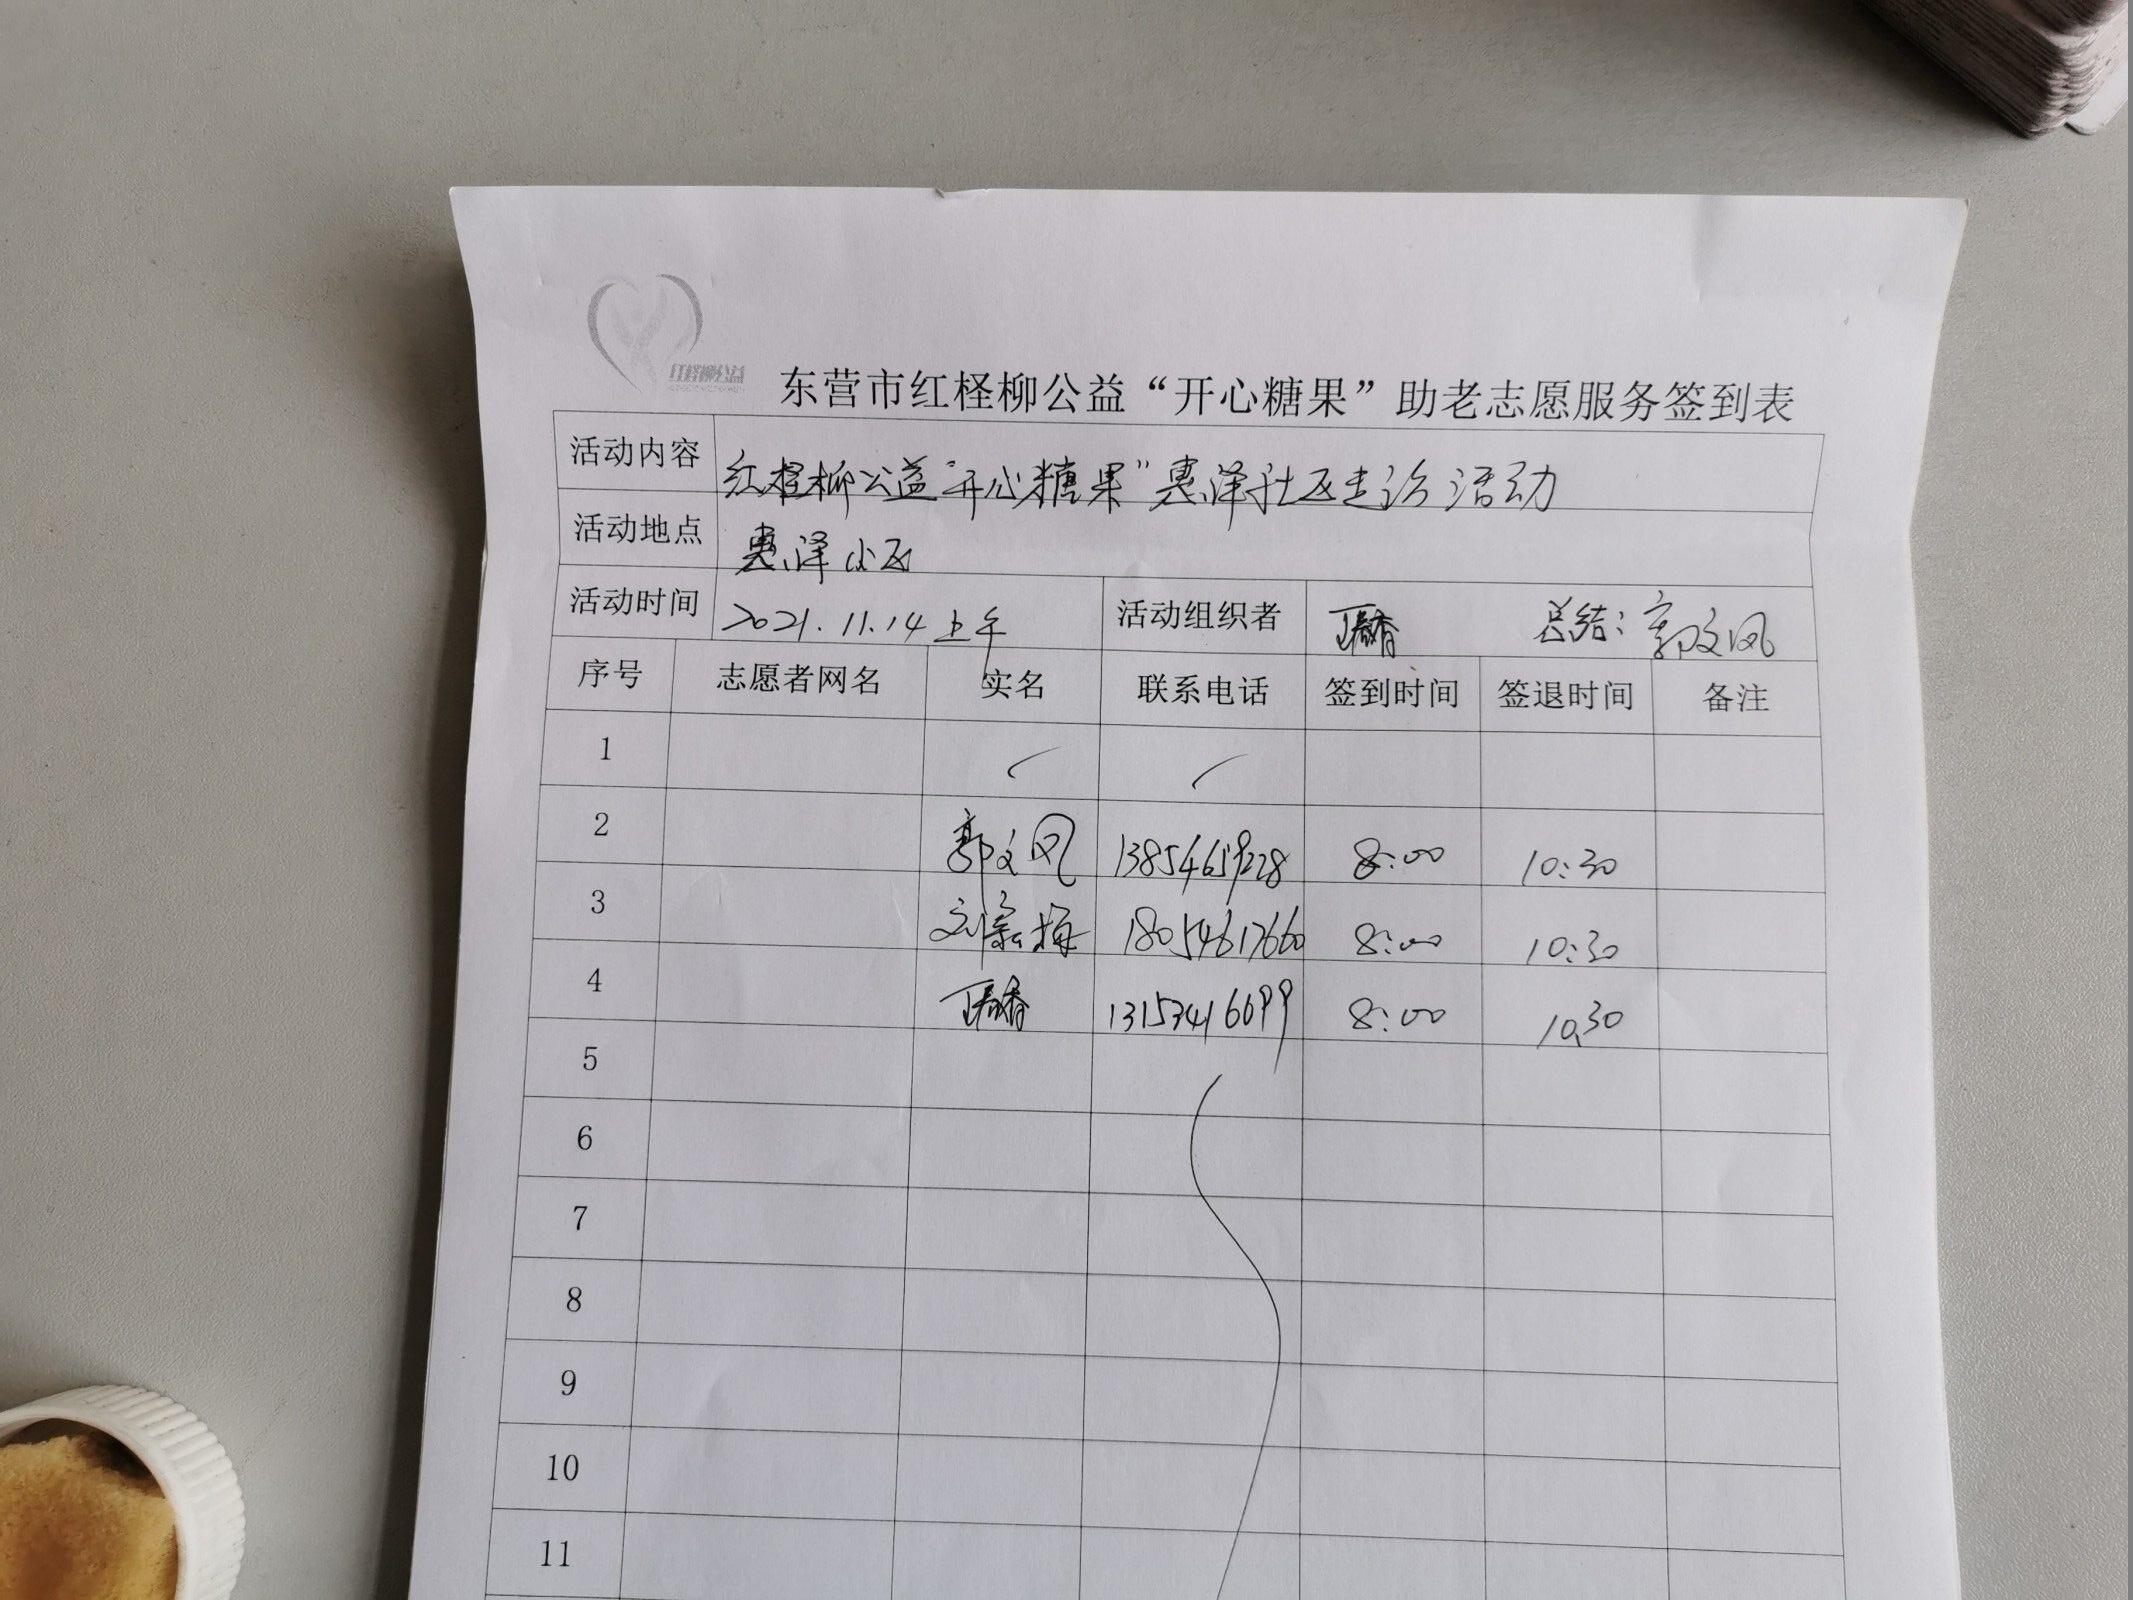 红柽柳公益
东营市红柽柳公益“开心糖果”助老志愿服务签到表
活动内容 红柽柳公益“开心糖果”惠泽社区走访活动
活动地点 惠泽小区
活动时间 2021.11.14上午 活动组织者 总结：郭文风
序号 志愿者网名 实名 联系电话 签到时间 签退时间 备注
1
2 郭文风 13854659228 8:00 10:30
3 18054617660 8:00 10:30
4 13153416699 8:00 10:30
5
6
7
8
9
10
11